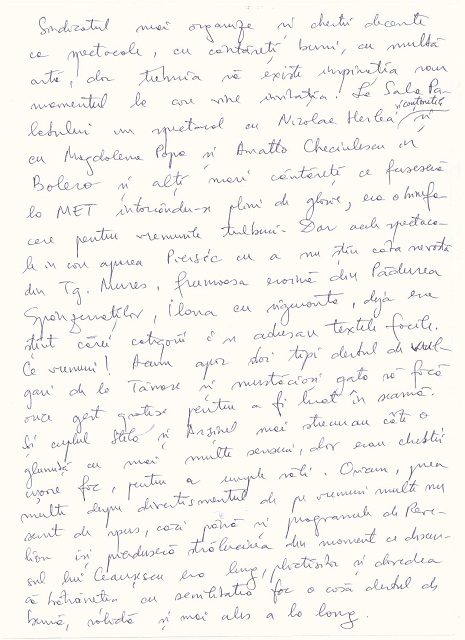 Sindicatul mai organiza și chestii decente
ca spectacole, cu cântăreți buni, cu multă
artă, dar trebuia să existe inspirația sau
momentul la care vine invitația! La Sala Pa-
latului un spectacol cu Nicolae Herlea și cântăreții
cu Magdalena Popa și Amatto Checiulescu în
Bolero și alți mari cântăreți ce fuseseră
la MET întorcându-se plini de glorie, era o binefa-
cere pentru vremurile tulburi. Dar acele spectaco-
le in care apărea Piersic cu a nu știu câta nevastă
din Tg. Mureș, frumoasa eroină din Pădurea
Spânzuraților, Ilona cu siguranță, deja era
știut cărei categorii i se adresau textele facile.
Ce vremuri! Acum apar doi tipi destul de vul-
gari de la Tănase și mustăcioși gata să facă
orice gest grotesc pentru a fi luat în seamă.
Și cuplul Stela și Arșinel mai strecurau câte o
glumiță cu mai multe sensuri, dar erau chestii
ușoare foc, pentru a umple săli. Oricum, prea
multe despre divertismentul de pe vremuri multe nu
sunt de spus, căci până și programele de Reve-
lion își pierduseră strălucirea din moment ce discur-
sul lui Ceaușescu era lung, plictisitor și dovedea
că bătrânețea cu senilitatea fac o casă destul de
bună, solidă și mai ales a la long.